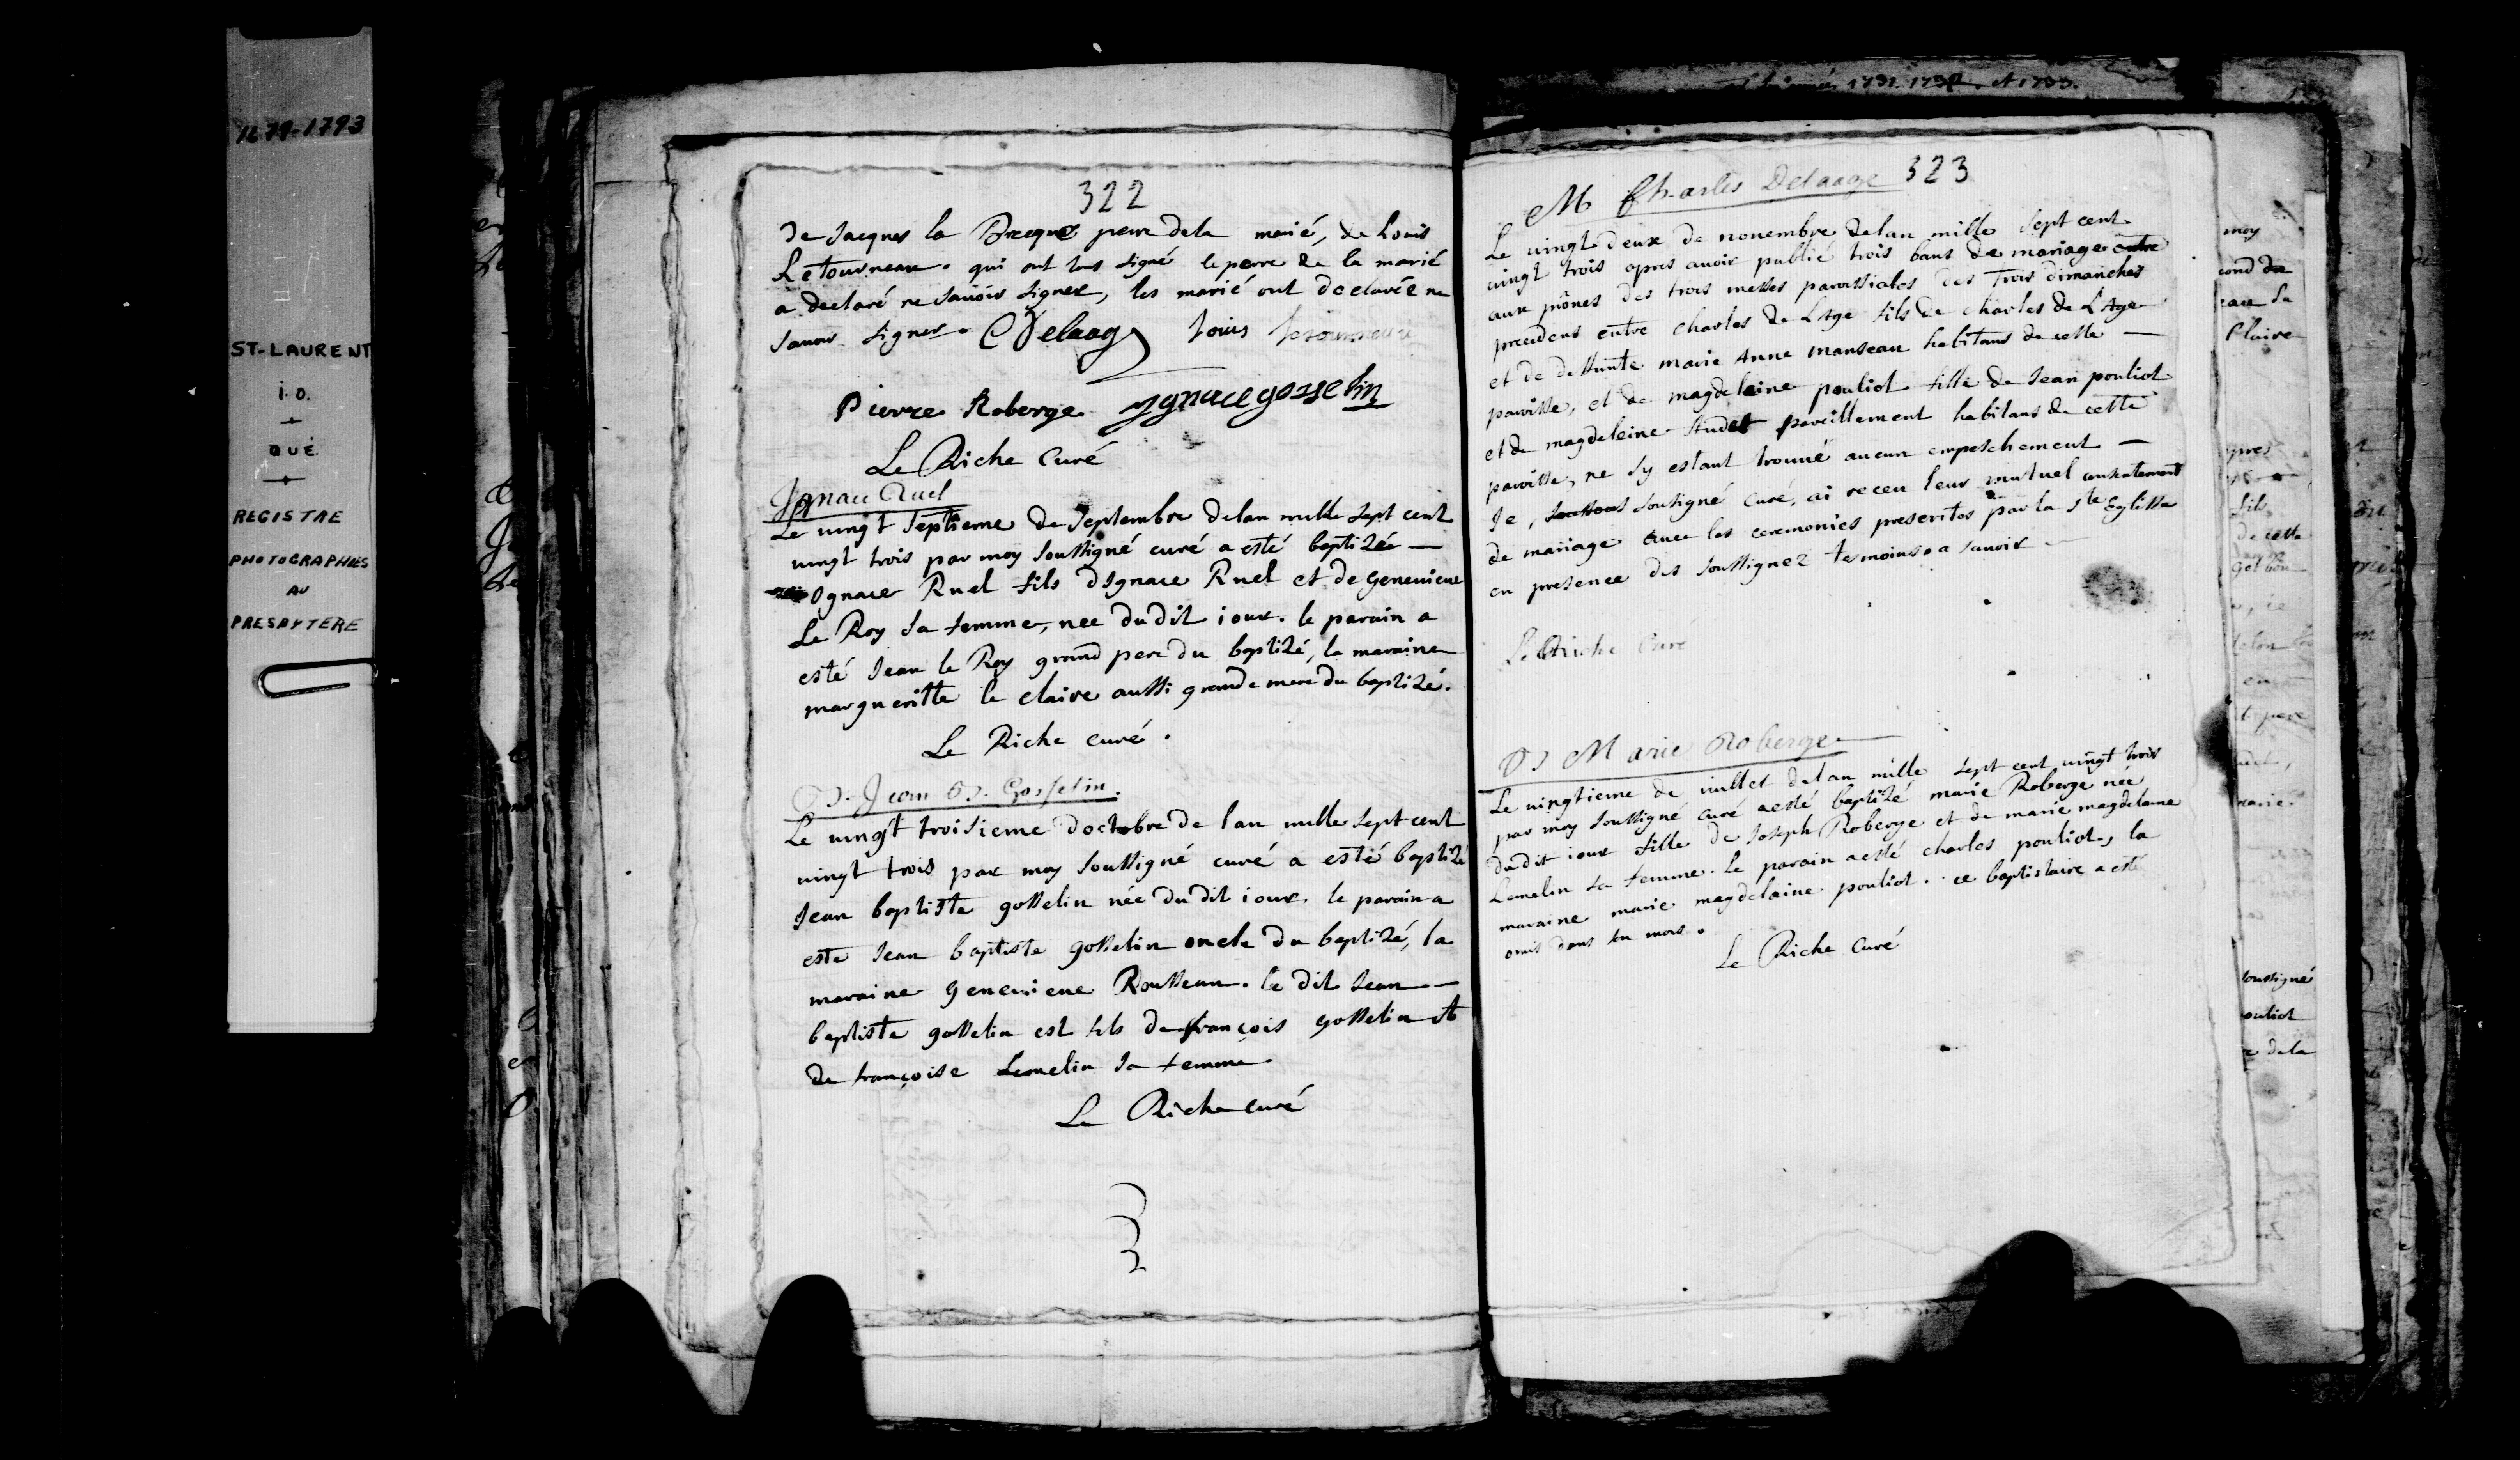 1679-1793
ST-LAURENT
i.o.
QUÉ.
REGISTRE
PHOTOGRAPHIES
AU
PRESBYTERE
322
de Jacques la Brecque perre dela marié, de Louis
Letourneau. qui ont tous signé le perre de la marié
a declaré ne savoir signer, les marié ont declarée ne
savoir signer. CDelaage Louis letourneau
Pierre Roberge ygnace gosselin
Le Riche Curé
Ignace Ruel
Le vingt Septieme de Septembre delan mille sept cent
vingt trois par moy soussigné curé a esté baptizée —
Ignace Ruel fils dIgnace Ruel et de genevieve
Le Roy sa femme, nee du dit iour. le parain a
esté Jean le Roy grand pere du baptizé, la maraine
margueritte le claire aussi grande mere du baptizé.
Le Riche curé.
B. Jean B. Gosselin.
Le vingt troisieme doctobre de lan mille sept cent
vingt trois par moy soussigné curé a esté baptizé
Jean baptiste gosselin née du dit iour. le parain a
este Jean baptiste gosselin oncle du baptizé, la
maraine genevieve Rousseau. le dit Jean —
baptiste gosselin est fils de françois gosselin et
de françoise Lemelin sa femme.
Le Riche curé
les années 1731. 1732. et 1733.
M Charles Delaage 323
Le vingt deux de novembre delan mille sept cent
vingt trois apres avoir publié trois bans de mariage entre
aux prônes des trois messes paroissiales des trois dimanches
precedens entre charles de L'Age fils de charles de L'Age
et de deffunte marie Anne manseau habitans de cette —
paroisse, et de magdeleine pouliot fille de Jean pouliot
et de magdeleine Audet pareillement habitans de cette
paroisse, ne sy estant trouvé aucun empeschement —
Je, soussigné curé, ai receu leur mutuel consentement
de mariage avec les ceremonies prescrites par la Ste Eglisse
en presence des soussignez tesmoins. a savoir
Le Riche Curé
B Marie Roberge
Le vingtieme de iuillet delan mille sept cent vingt trois
par moy soussigné curé a esté baptizé marie Roberge née
du dit iour fille de Joseph Roberge et de marie magdelaine
Lemelin sa femme. le parain a esté charles pouliot, la
maraine marie magdelaine pouliot. ce baptistaire a esté
omis dans son mois.
Le Riche Curé
moy
Plaire
apres
fils
de cette
pere
marie
soussigné
pouliot
dela